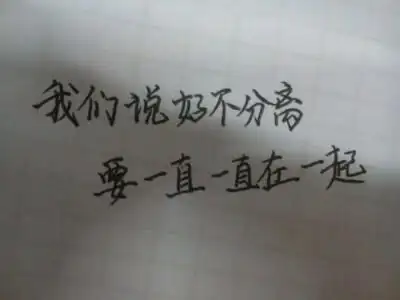 我们说好不分离
要一直一直在一起